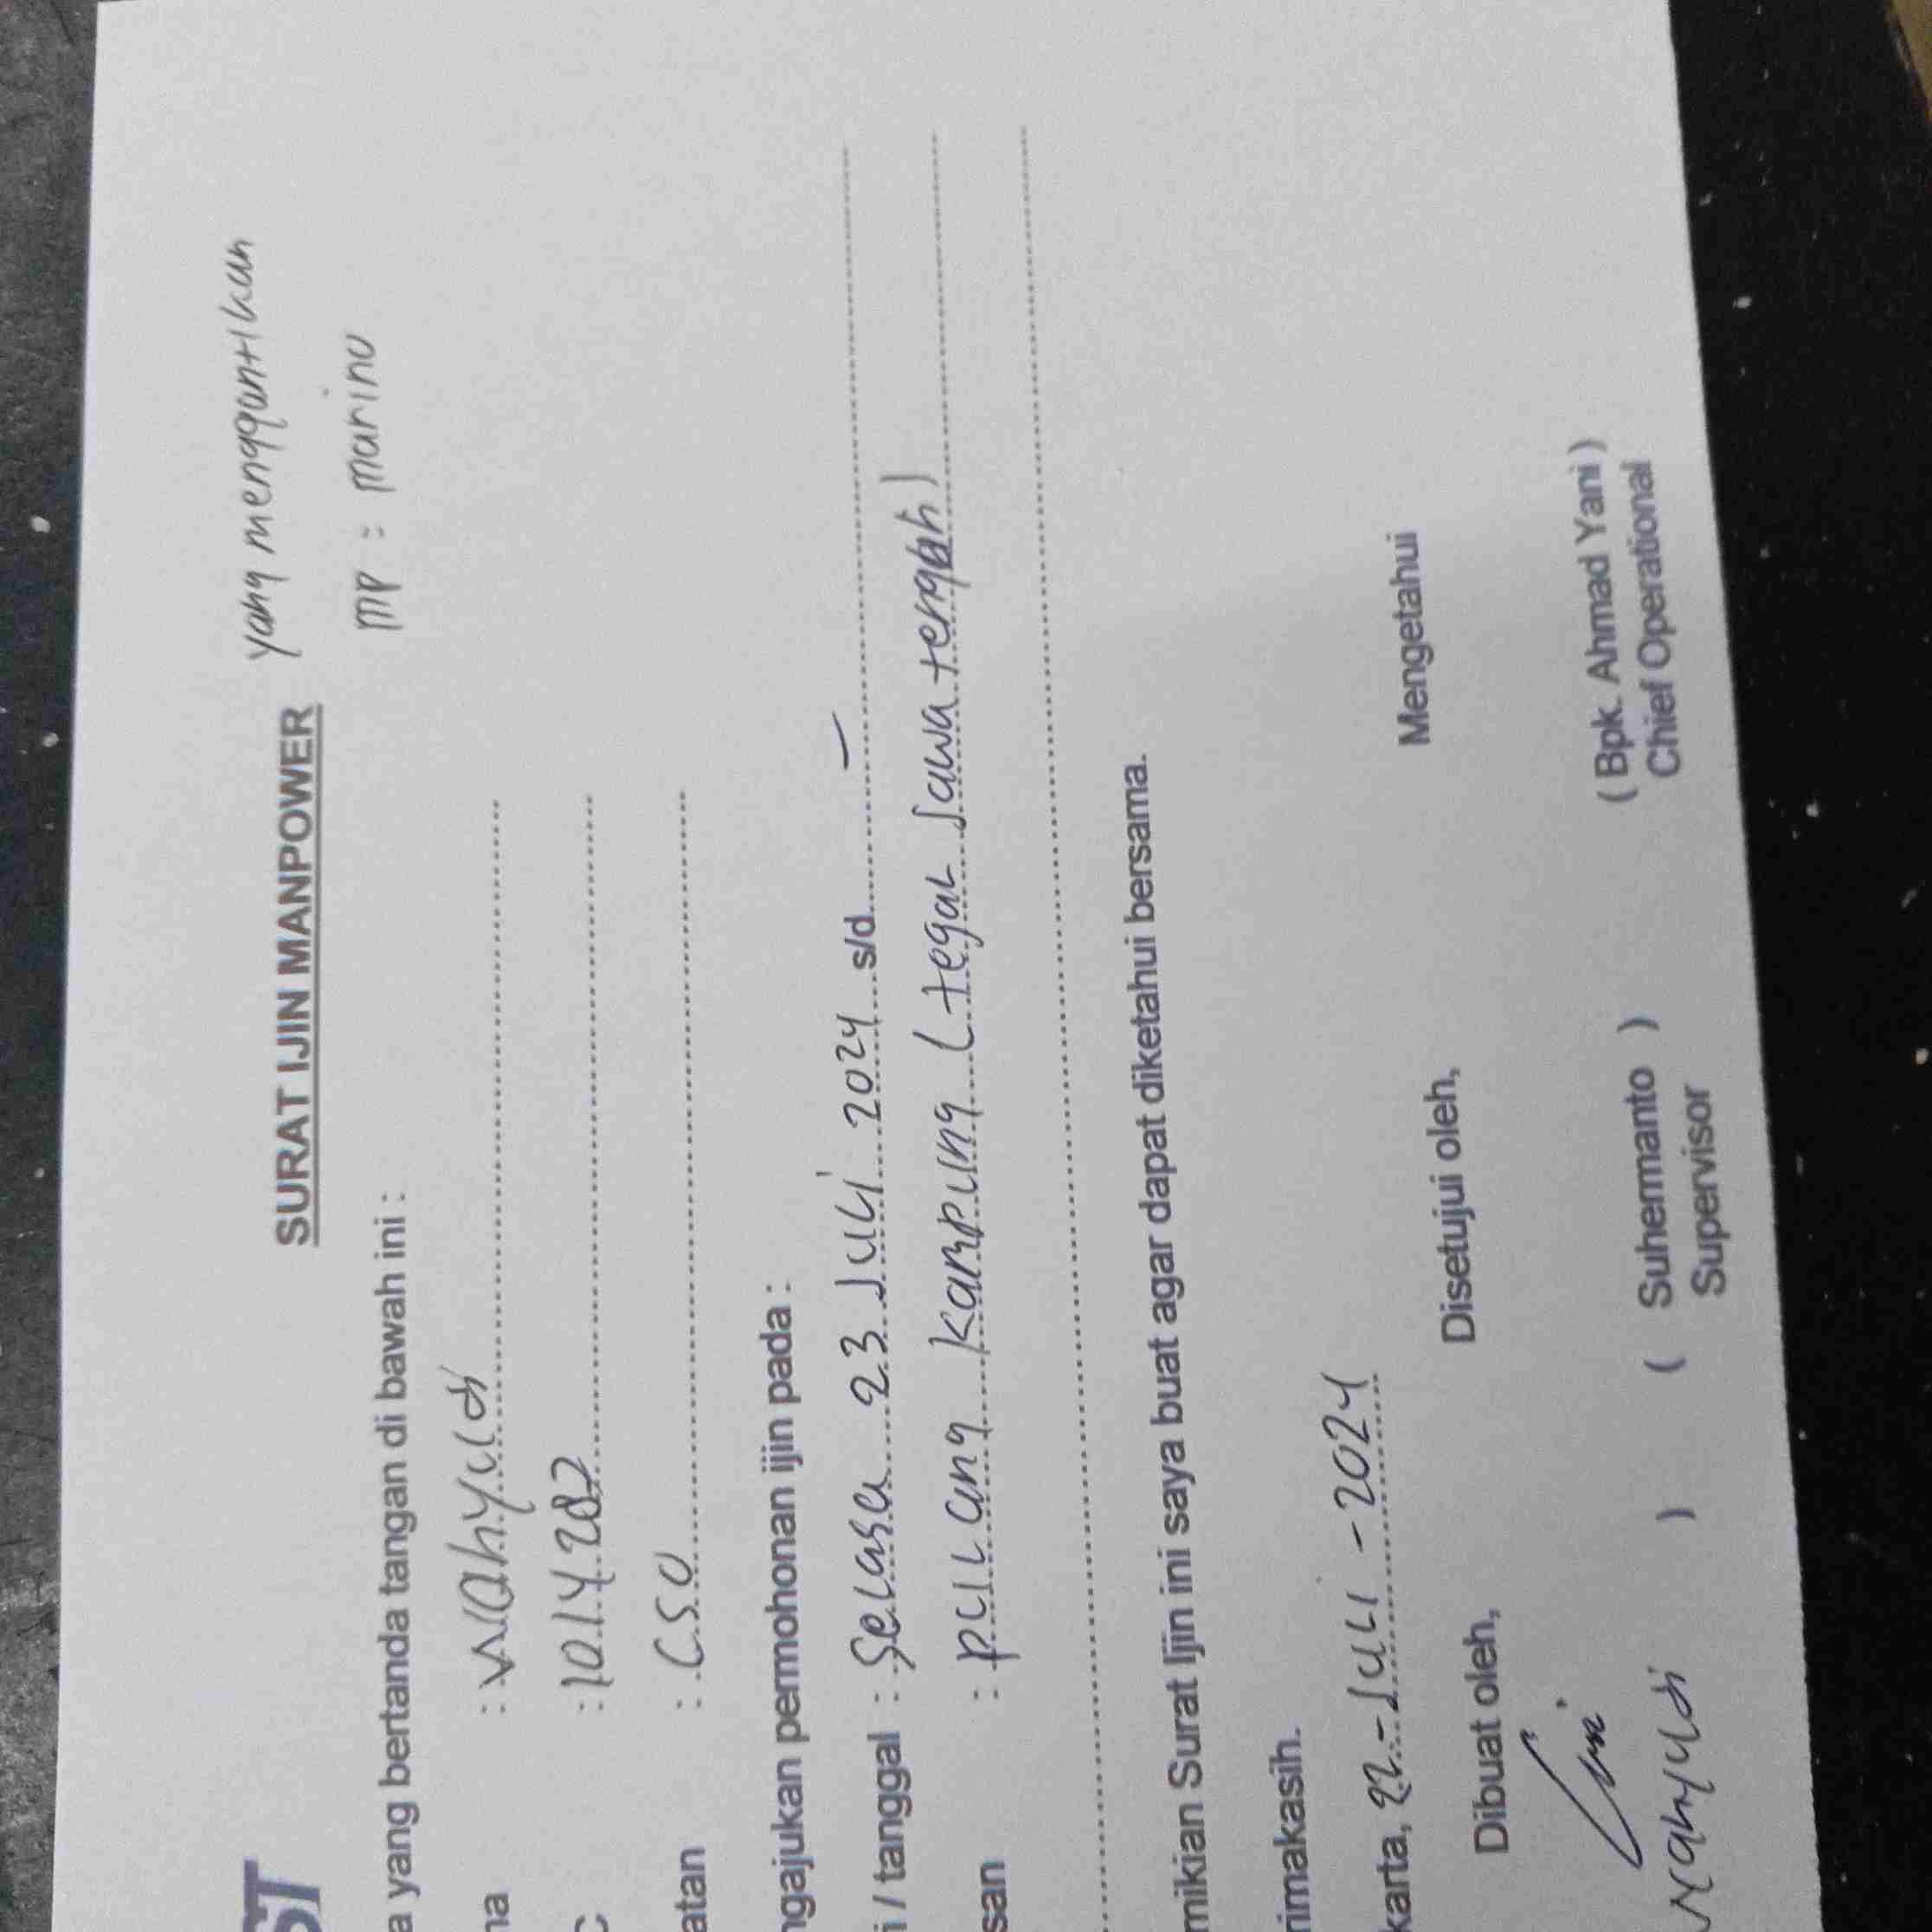 ST
SURAT IJIN MANPOWER
yang menggantikan
MP : marino
a yang bertanda tangan di bawah ini :
na : WAhyudi
C : 1014282
atan : CSO
ngajukan permohonan ijin pada :
i / tanggal : Selasa 23 Juli 2024 s/d –
san : pulang kampung ( tegal Jawa tengah )
mikian Surat Ijin ini saya buat agar dapat diketahui bersama.
rimakasih.
karta, 22 - Juli - 2024
Dibuat oleh, Disetujui oleh, Mengetahui
Wahyudi ) ( Suhermanto ) ( Bpk. Ahmad Yani )
Supervisor Chief Operational